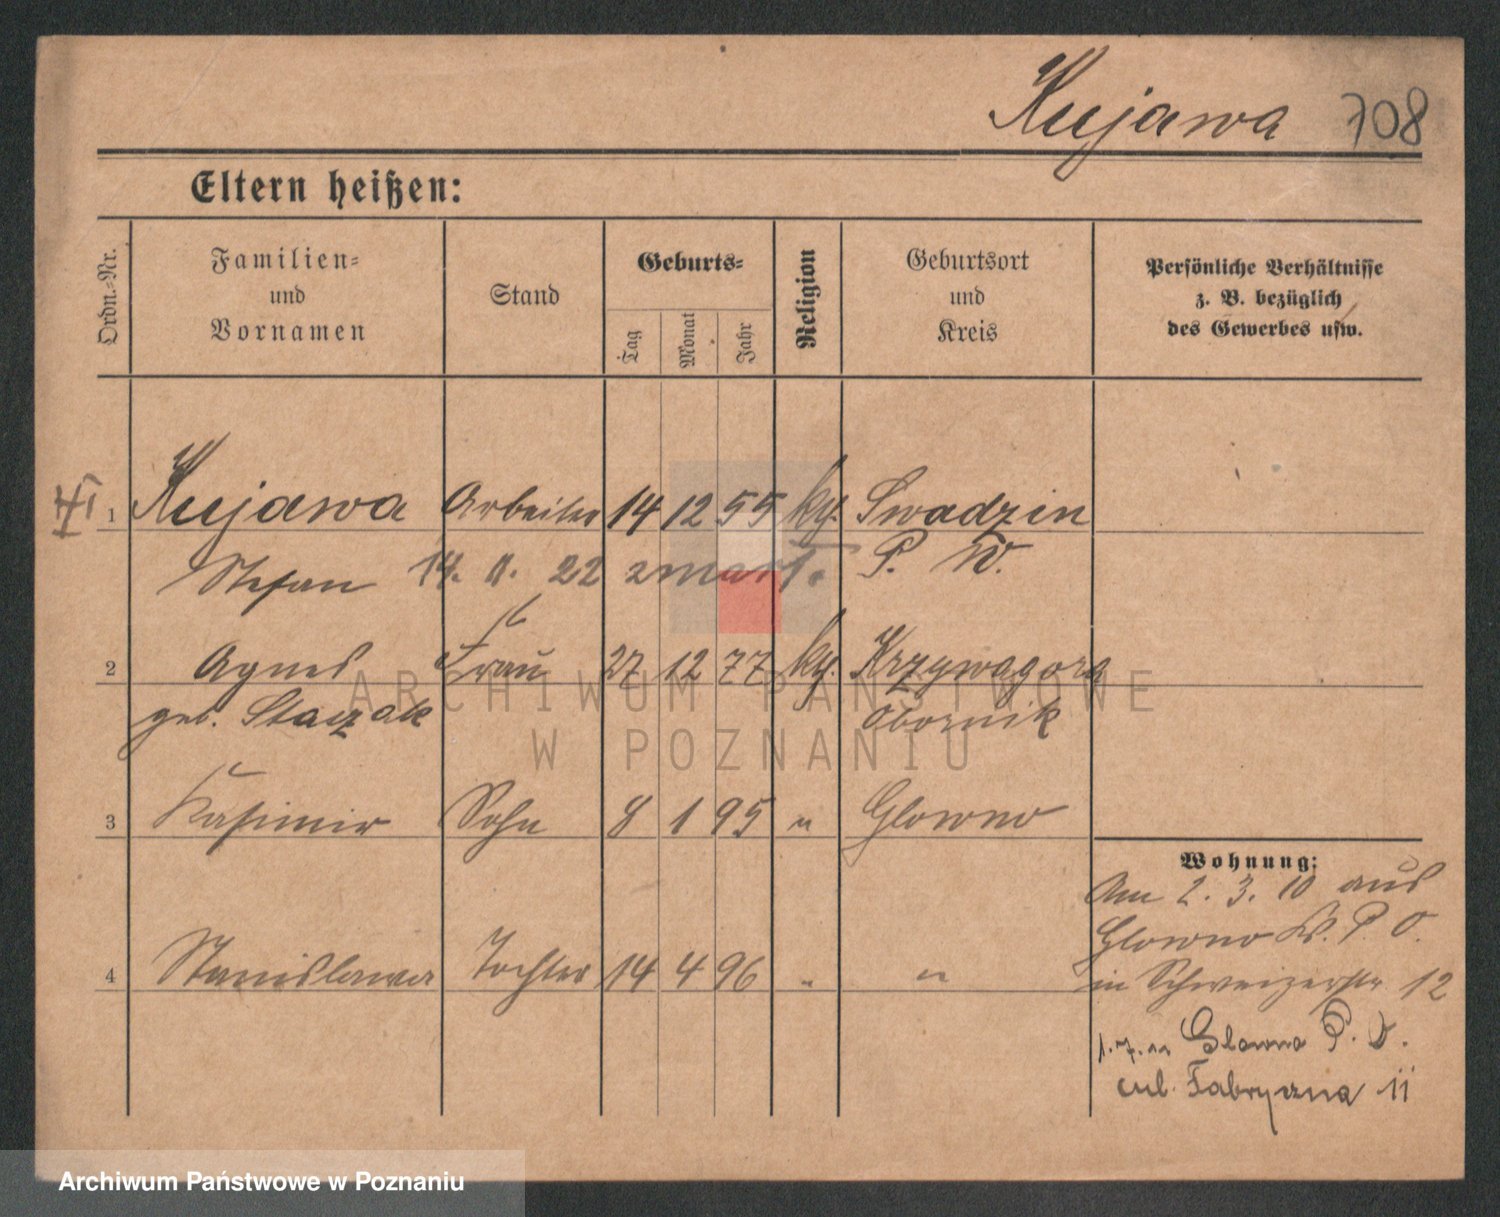 Kujawa 708
Eltern heißen:
Ordn.-Nr.
Familien-
und
Vornamen
Stand
Geburts-
Tag
Monat
Jahr
Religion
Geburtsort
und
Kreis
Persönliche Verhältnisse
z. B. bezüglich
des Gewerbes usw.
1 Kujawa Arbeiter 14 12 55 kg. Swadzin
Stefan 14. 11. 22 zmarł. P. W.
2 Agnes Frau 27 12 77 kg. Krzywagora
geb. Staczak Obornik
3 Kasimir Sohn 8 1 95 " Glowno
4 Stanislawa Tochter 14 4 96 " "
Wohnung:
Am 2. 3. 10 aus
Glowno Kr. P. O.
in Schweizerstr 12
1. 7. 11 Glowno P. O.
Fabryczna 11
ARCHIWUM PAŃSTWOWE
W POZNANIU
Archiwum Państwowe w Poznaniu